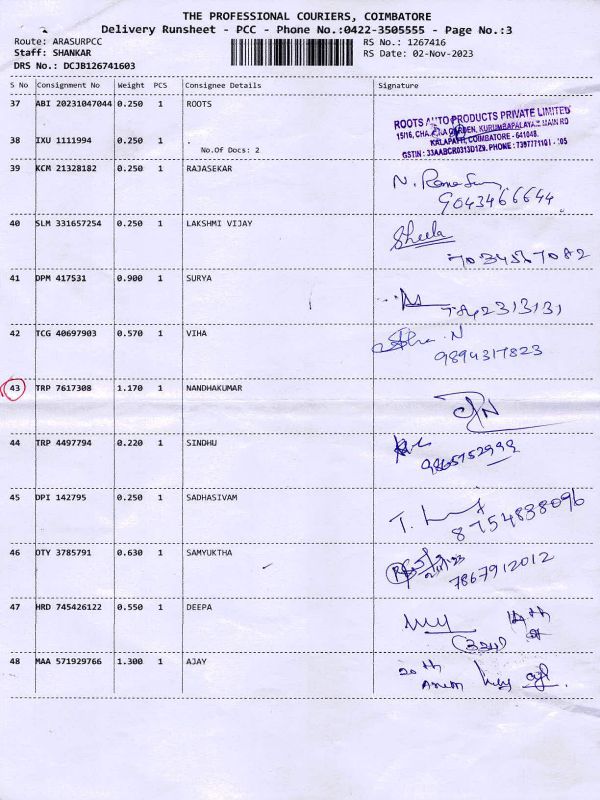 THE PROFESSIONAL COURIERS, COIMBATORE
Delivery Runsheet - PCC - Phone No.:0422-3505555 - Page No.:3
Route: ARASURPCC RS No.: 1267416
Staff: SHANKAR RS Date: 02-Nov-2023
DRS No.: DCJB126741603
S No Consignment No Weight PCS Consignee Details Signature
37 ABI 20231047044 0.250 1 ROOTS
ROOTS AUTO PRODUCTS PRIVATE LIMITED
GARDEN, KURUMBAPALAYAM MAIN RD
KALAPATTI, COIMBATORE - 641048.
38 IXU 1111994 0.250 1
No.Of Docs: 2
GSTIN : 33AABCR0313D1Z9. PHONE : 7397771101 - '05
39 KCM 21328182 0.250 1 RAJASEKAR
9043466644
40 SLM 331657254 0.250 1 LAKSHMI VIJAY Sheela
7034567082
41 DPM 417531 0.900 1 SURYA
42 TCG 40697903 0.570 1 VIHA
9894317823
43 TRP 7617308 1.170 1 NANDHAKUMAR
44 TRP 4497794 0.220 1 SINDHU
9865752999
45 DPI 142795 0.250 1 SADHASIVAM
8754838096
46 OTY 3785791 0.630 1 SAMYUKTHA
7867912012
47 HRD 745426122 0.550 1 DEEPA
48 MAA 571929766 1.300 1 AJAY
20th